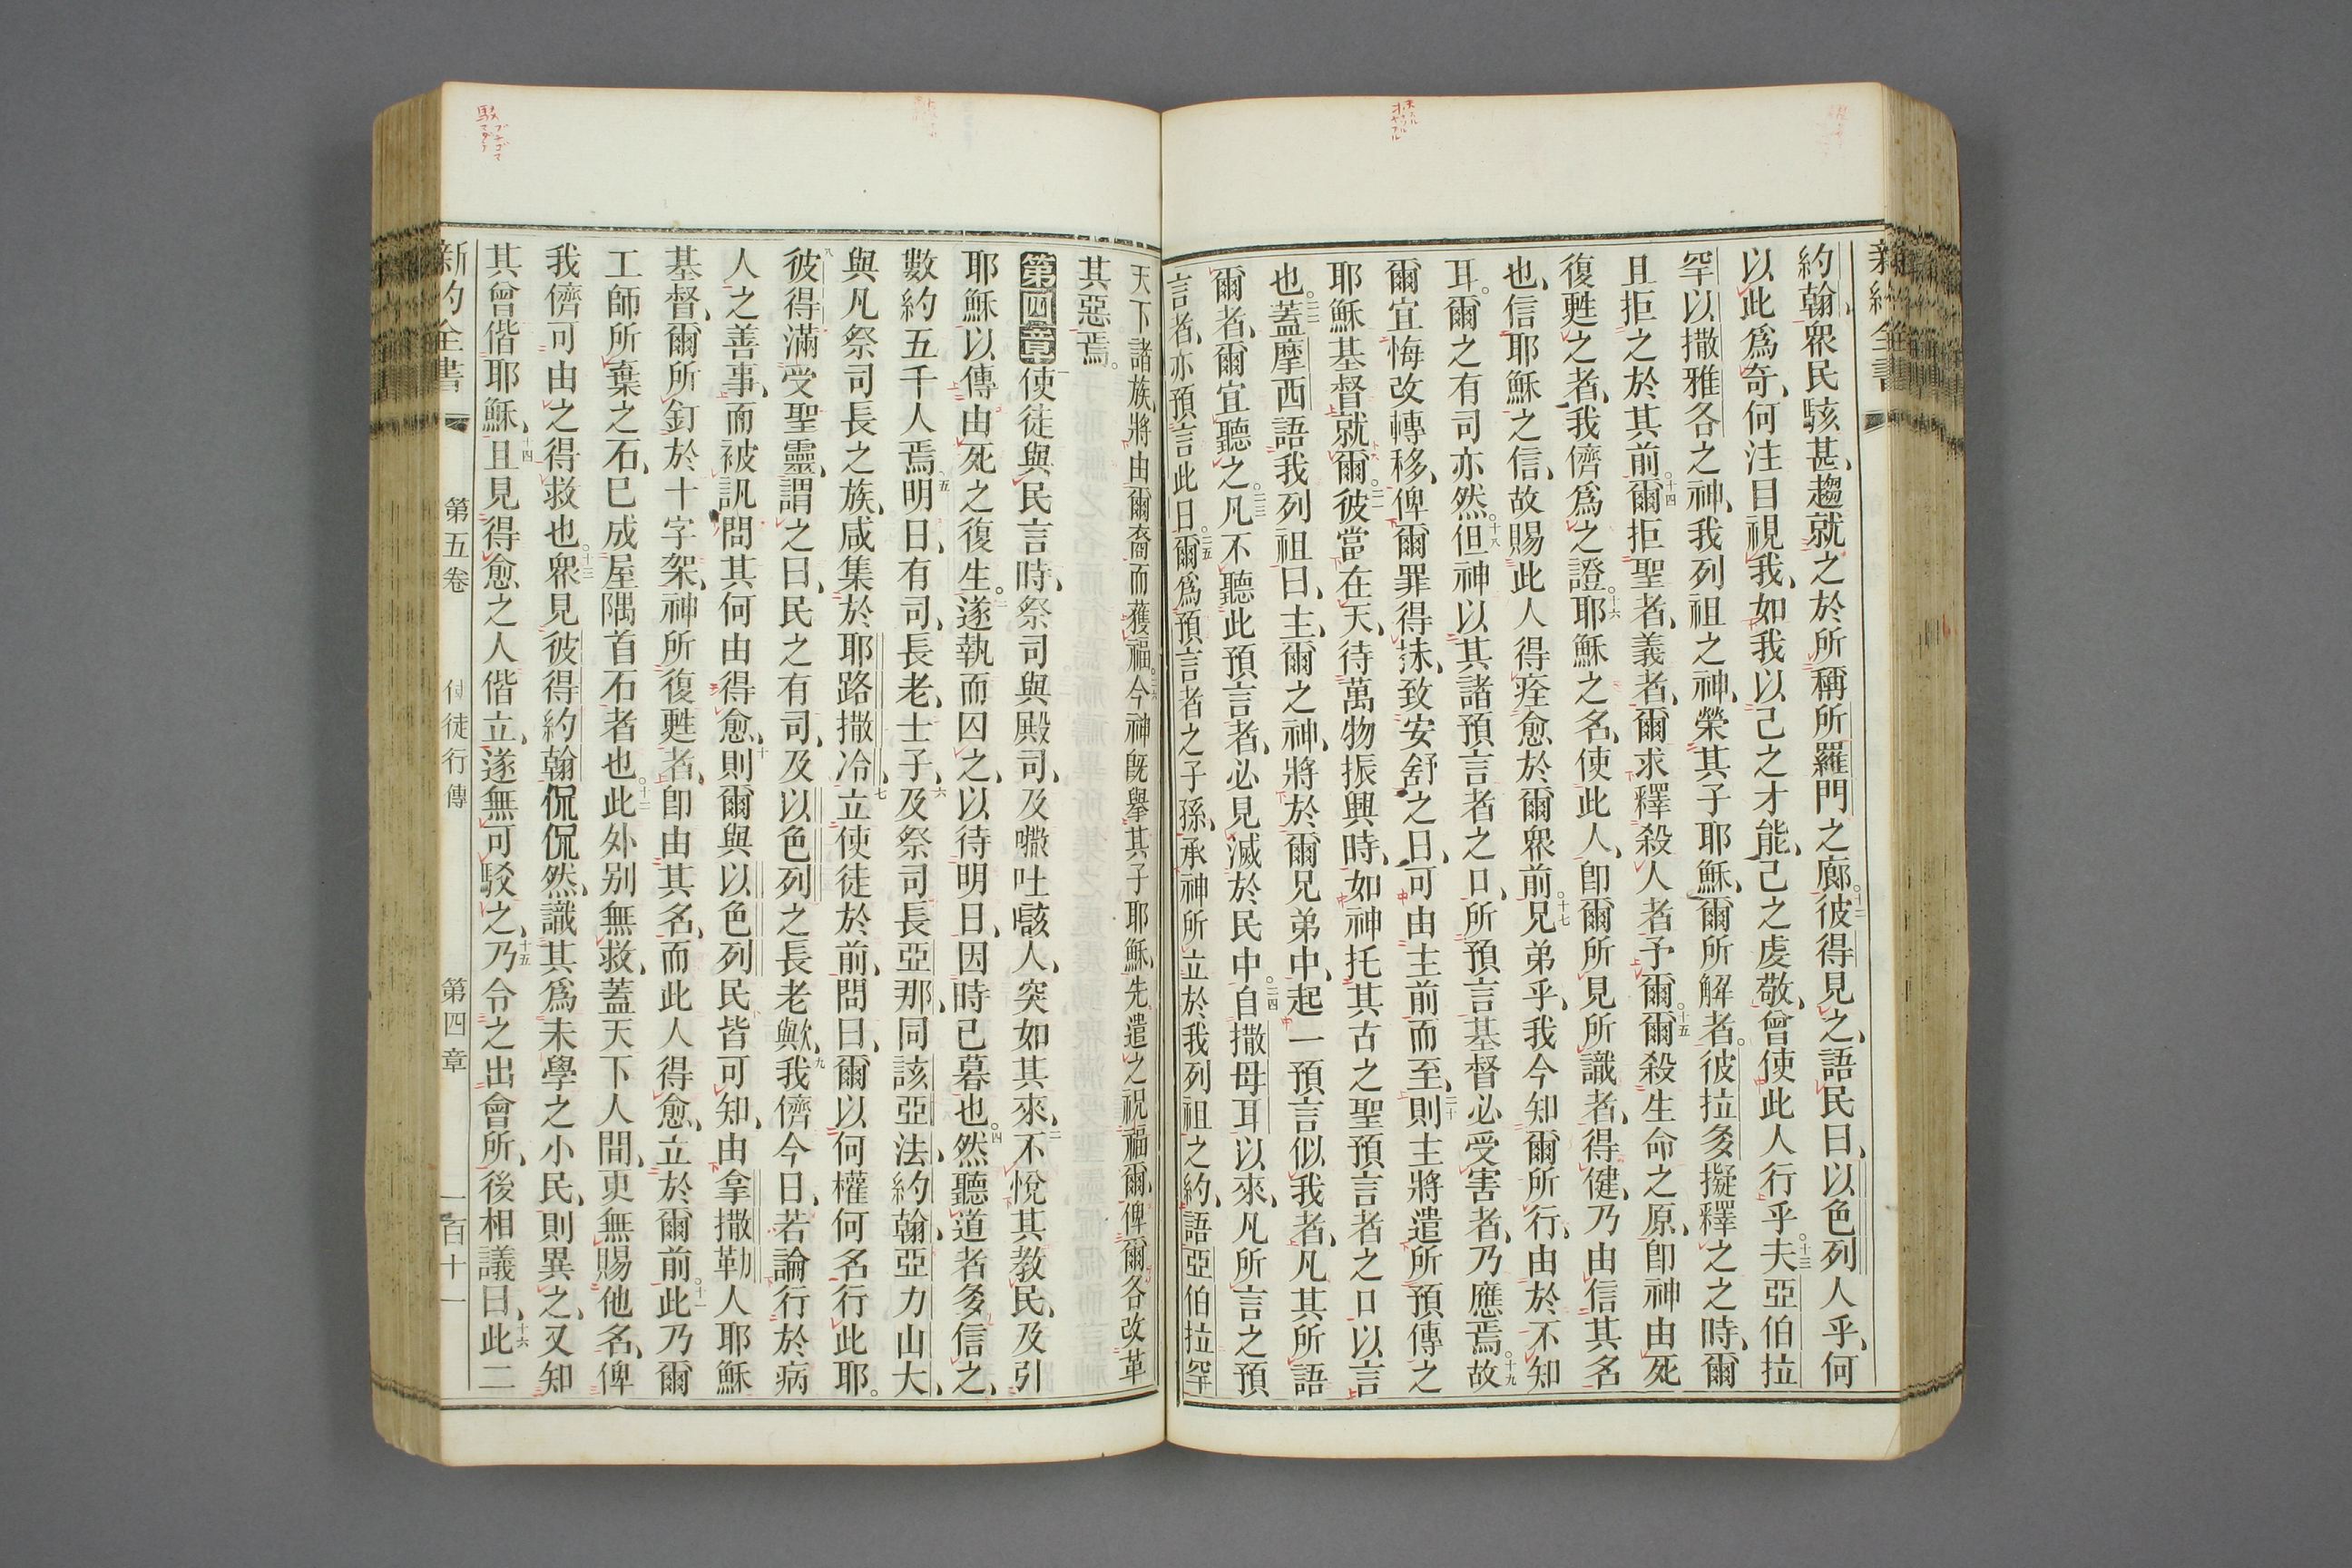 新約全書
約翰、衆民駭甚、趨就之於所稱所羅門之廊。十二彼得見之、語民曰、以色列人乎、何
以此爲奇、何注目視我、如我以己之才能、己之虔敬、曾使此人行乎。十三夫亞伯拉
罕以撒雅各之神、我列祖之神、榮其子耶穌、爾所解者。彼拉多擬釋之之時、爾
且拒之於其前。十四爾拒聖者、義者、爾求釋殺人者予爾。十五爾殺生命之原、卽神由死
復甦之者、我儕爲之證。十六耶穌之名、使此人、卽爾所見所識者、得健、乃由信其名
也、信耶穌之信、故賜此人得痊愈於爾衆前。十七兄弟乎、我今知爾所行、由於不知
耳。爾之有司亦然。十八但神以其諸預言者之口、所預言基督必受害者、乃應焉。十九故
爾宜悔改轉移、俾爾罪得抹、致安舒之日、可由主前而至、二十則主將遣所預傳之
耶穌基督就爾。二一彼當在天、待萬物振興時、如神托其古之聖預言者之口以言
也。二二蓋摩西語我列祖曰、主、爾之神、將於爾兄弟中、起一預言似我者、凡其所語
爾者、爾宜聽之。二三凡不聽此預言者、必見滅於民中。二四自撒母耳以來、凡所言之預
言者、亦預言此日。二五爾爲預言者之子孫、承神所立於我列祖之約、語亞伯拉罕
天下諸族、將由爾裔而獲福。二六今神既舉其子耶穌、先遣之祝福爾、俾爾各改革
其惡焉。
第四章一使徒與民言時、祭司與殿司、及㘔吐㗢人、突如其來、二不悅其教民、及引
耶穌以傳由死之復生。三遂執而囚之、以待明日、因時已暮也。四然聽道者多信之、
數約五千人焉。五明日、有司、長老、士子、六及祭司長亞那、同該亞法、約翰亞力山大、
與凡祭司長之族、咸集於耶路撒冷、七立使徒於前、問曰、爾以何權何名行此耶。
八彼得滿受聖靈、謂之曰、民之有司、及以色列之長老歟、九我儕今日、若論行於病
人之善事、而被訊問其何由得愈、十則爾與以色列民皆可知、由拿撒勒人耶穌
基督、爾所釘於十字架、神所復甦者、卽由其名、而此人得愈、立於爾前。十一此乃爾
工師所棄之石、已成屋隅首石者也。十二此外別無救、蓋天下人間、更無賜他名、俾
我儕可由之得救也。十三衆見彼得約翰侃侃然、識其爲未學之小民、則異之、又知
其曾偕耶穌、十四且見得愈之人偕立、遂無可駁之、十五乃令之出會所、後相議曰、十六此二
新約全書 第五卷 使徒行傳 第四章 一百十一